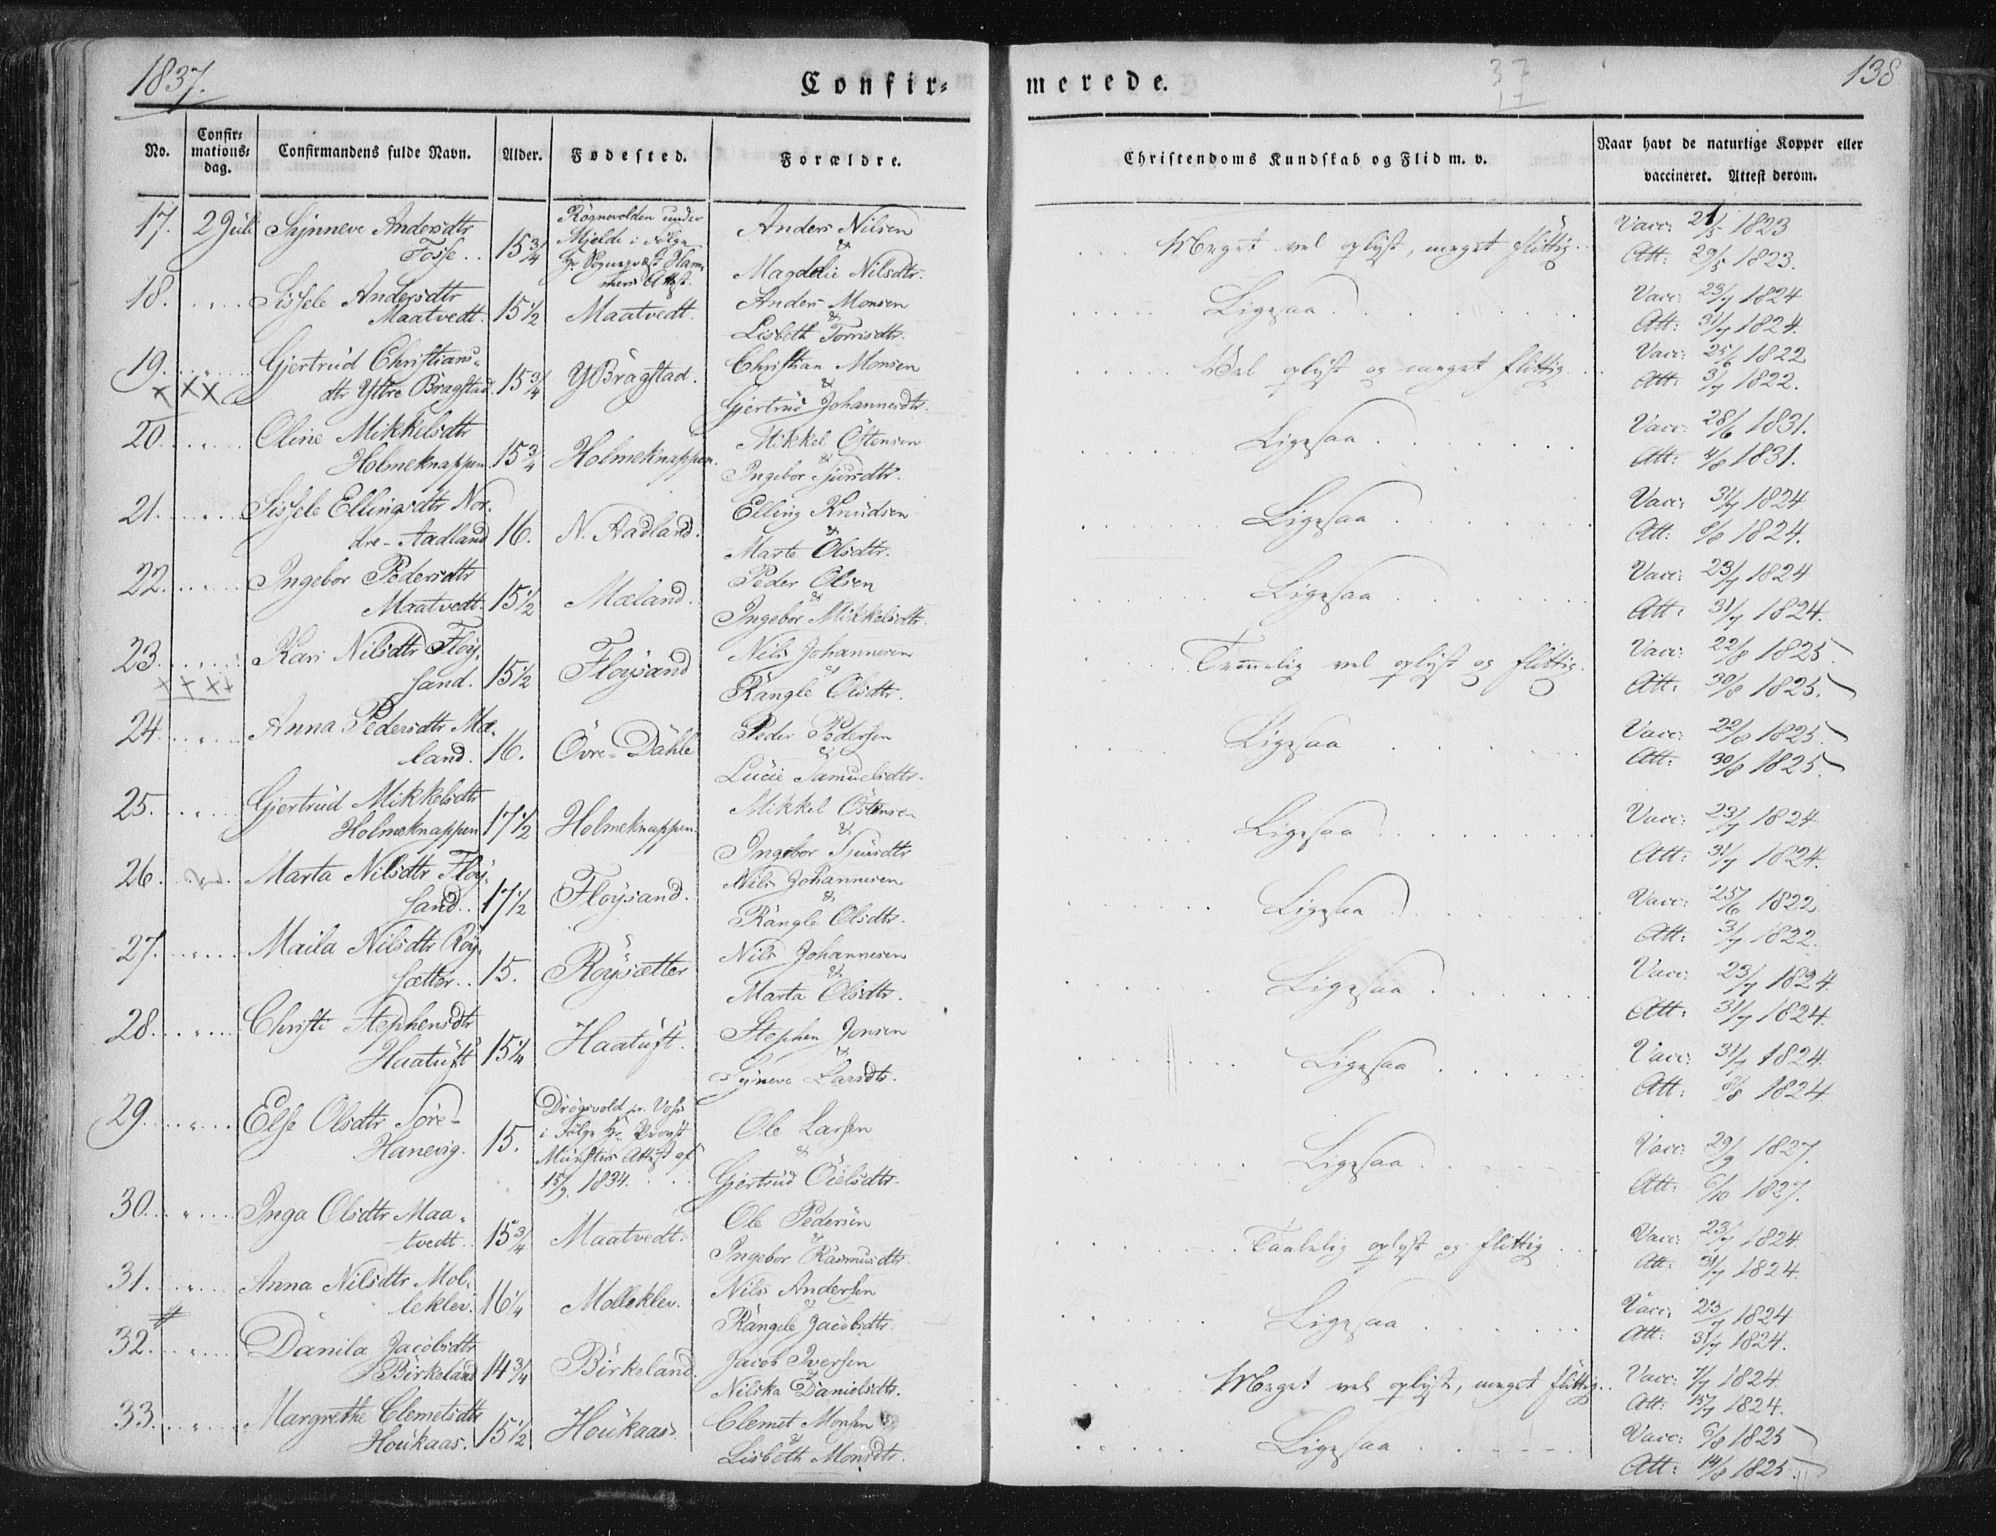 1837.
Confir-
merede.
37
17
138
No.
Confir-
mations-
dag.
Confirmandens fulde Navn.
Alder.
Fødested.
Forældre.
Christendoms Kundskab og Flid m. v.
Naar havt de naturlige Kopper eller
vaccineret. Attest derom.
17. 2 Juli Synneve Andersdtr Fosse .. 15 3/4 Rögnevolden under
Mjelde i Følge
Hr. Sognepræst
Attest. Anders Nilsen
&
Magdeli Nilsdtr. Meget vel oplyst, meget flittig. Vacc: 21/5 1823
Att: 29/5 1823.
18. " Sissele Andersdtr
Maatvedt. 15 1/2 Maatvedt. Anders Monsen
&
Lisbeth Torrisdtr. Ligesaa Vacc: 23/7 1824
Att: 31/7 1824.
19. " Gjertrud Christians-
dtr Ytre Bragstad. 15 3/4 Y Bragstad. Christian Monsen
&
Gjertrud Johannesdtr. Vel oplyst og meget flittig Vacc: 25/6 1822
Att: 3/7 1822.
x xxx
20. " Oline Mikkelsdtr
Holmeknappen 15 3/4 Holmeknappen. Mikkel Östensen
&
Ingebor Sjursdtr. Ligesaa Vacc: 28/6 1831.
Att: 4/8 1831.
21. " Sissele Ellingsdtr Nor-
dre-Aadland 16. N. Aadland. Elling Knudsen
&
Marte Olsdtr. Ligesaa Vacc: 31/7 1824
Att: 6/8 1824.
22. " Ingebor Pedersdtr
Maatvedt. 15 1/2 Mæland. Peder Olsen
&
Ingebor Mikkelsdtr. Ligesaa Vacc: 23/7 1824
Att: 31/7 1824.
23. " Kari Nilsdtr Flöy-
sand. 15 1/2 Flöysand Nils Johannesen
&
Rangle Olsdtr. Temmelig vel oplyst og flittig. Vacc: 22/8 1825.
Att: 30/8 1825.
x x x x
24. " Anna Pedersdtr Mæ-
land. 16. Övre-Dahle Peder Pedersen
&
Lucie Samuelsdtr. Ligesaa Vacc: 22/8 1825.
Att: 30/8 1825.
25. " Gjertrud Mikkelsdtr
Holmeknappen 17 1/2 Holmeknappen Mikkel Östensen
&
Ingebor Sjursdtr Ligesaa Vacc: 23/7 1824
Att: 31/7 1824.
26. Marta Nilsdtr Flöy-
sand.. 17 1/2 Flöysand. Nils Johannesen
&
Rangle Olsdtr. Ligesaa Vacc: 25/6 1822
Att: 3/7 1822.
27. " Maila Nilsdtr Röy-
sætter.. 15. Röysætter Nils Johannesen
&
Marta Olsdtr. Ligesaa Vacc: 23/7 1824.
Att: 31/7 1824.
28. " Christi Stephensdtr
Haatuft 15 1/4 Haatuft. Stephen Jonsen
&
Syneve Larsdtr. Ligesaa Vacc: 31/7 1824.
Att: 6/8 1824.
29. " Else Olsdtr Söre-
Hanevig. 15. Drögsvold pr. Voss
i Følge Hr. Provst
Münsters Attest af
15/9 1834. Ole Larsen
&
Gjertrud Öielsdtr. Ligesaa Vacc: 29/9 1827.
Att: 6/10 1827.
30. " Inga Olsdtr Maa-
tvedt.. 15 3/4 Maatvedt. Ole Pedersen
&
Ingebor Rasmusdtr. Taalelig oplyst og flittig Vacc: 23/7 1824.
Att: 31/7 1824.
31. " Anna Nilsdtr Mol-
leklev. 16 1/4 Molleklev. Nils Andersen
&
Rangele Jacobsdtr. Ligesaa Vacc: 23/7 1824
Att: 31/7 1824.
#
32. " Danila Jacobsdtr
Birkeland 14 3/4 Birkeland. Jacob Iversen
&
Nilska Danielsdtr. Meget vel oplyst, meget flittig. Vacc: 7/7 1824.
Att: 15/7 1824.
33. " Margrethe Clemetsdtr
Houkaas. 15 1/2 Houkaas. Clemet Monsen
&
Lisbeth Monsdtr. Ligesaa Vacc: 6/8 1825
Att: 14/8 1825.